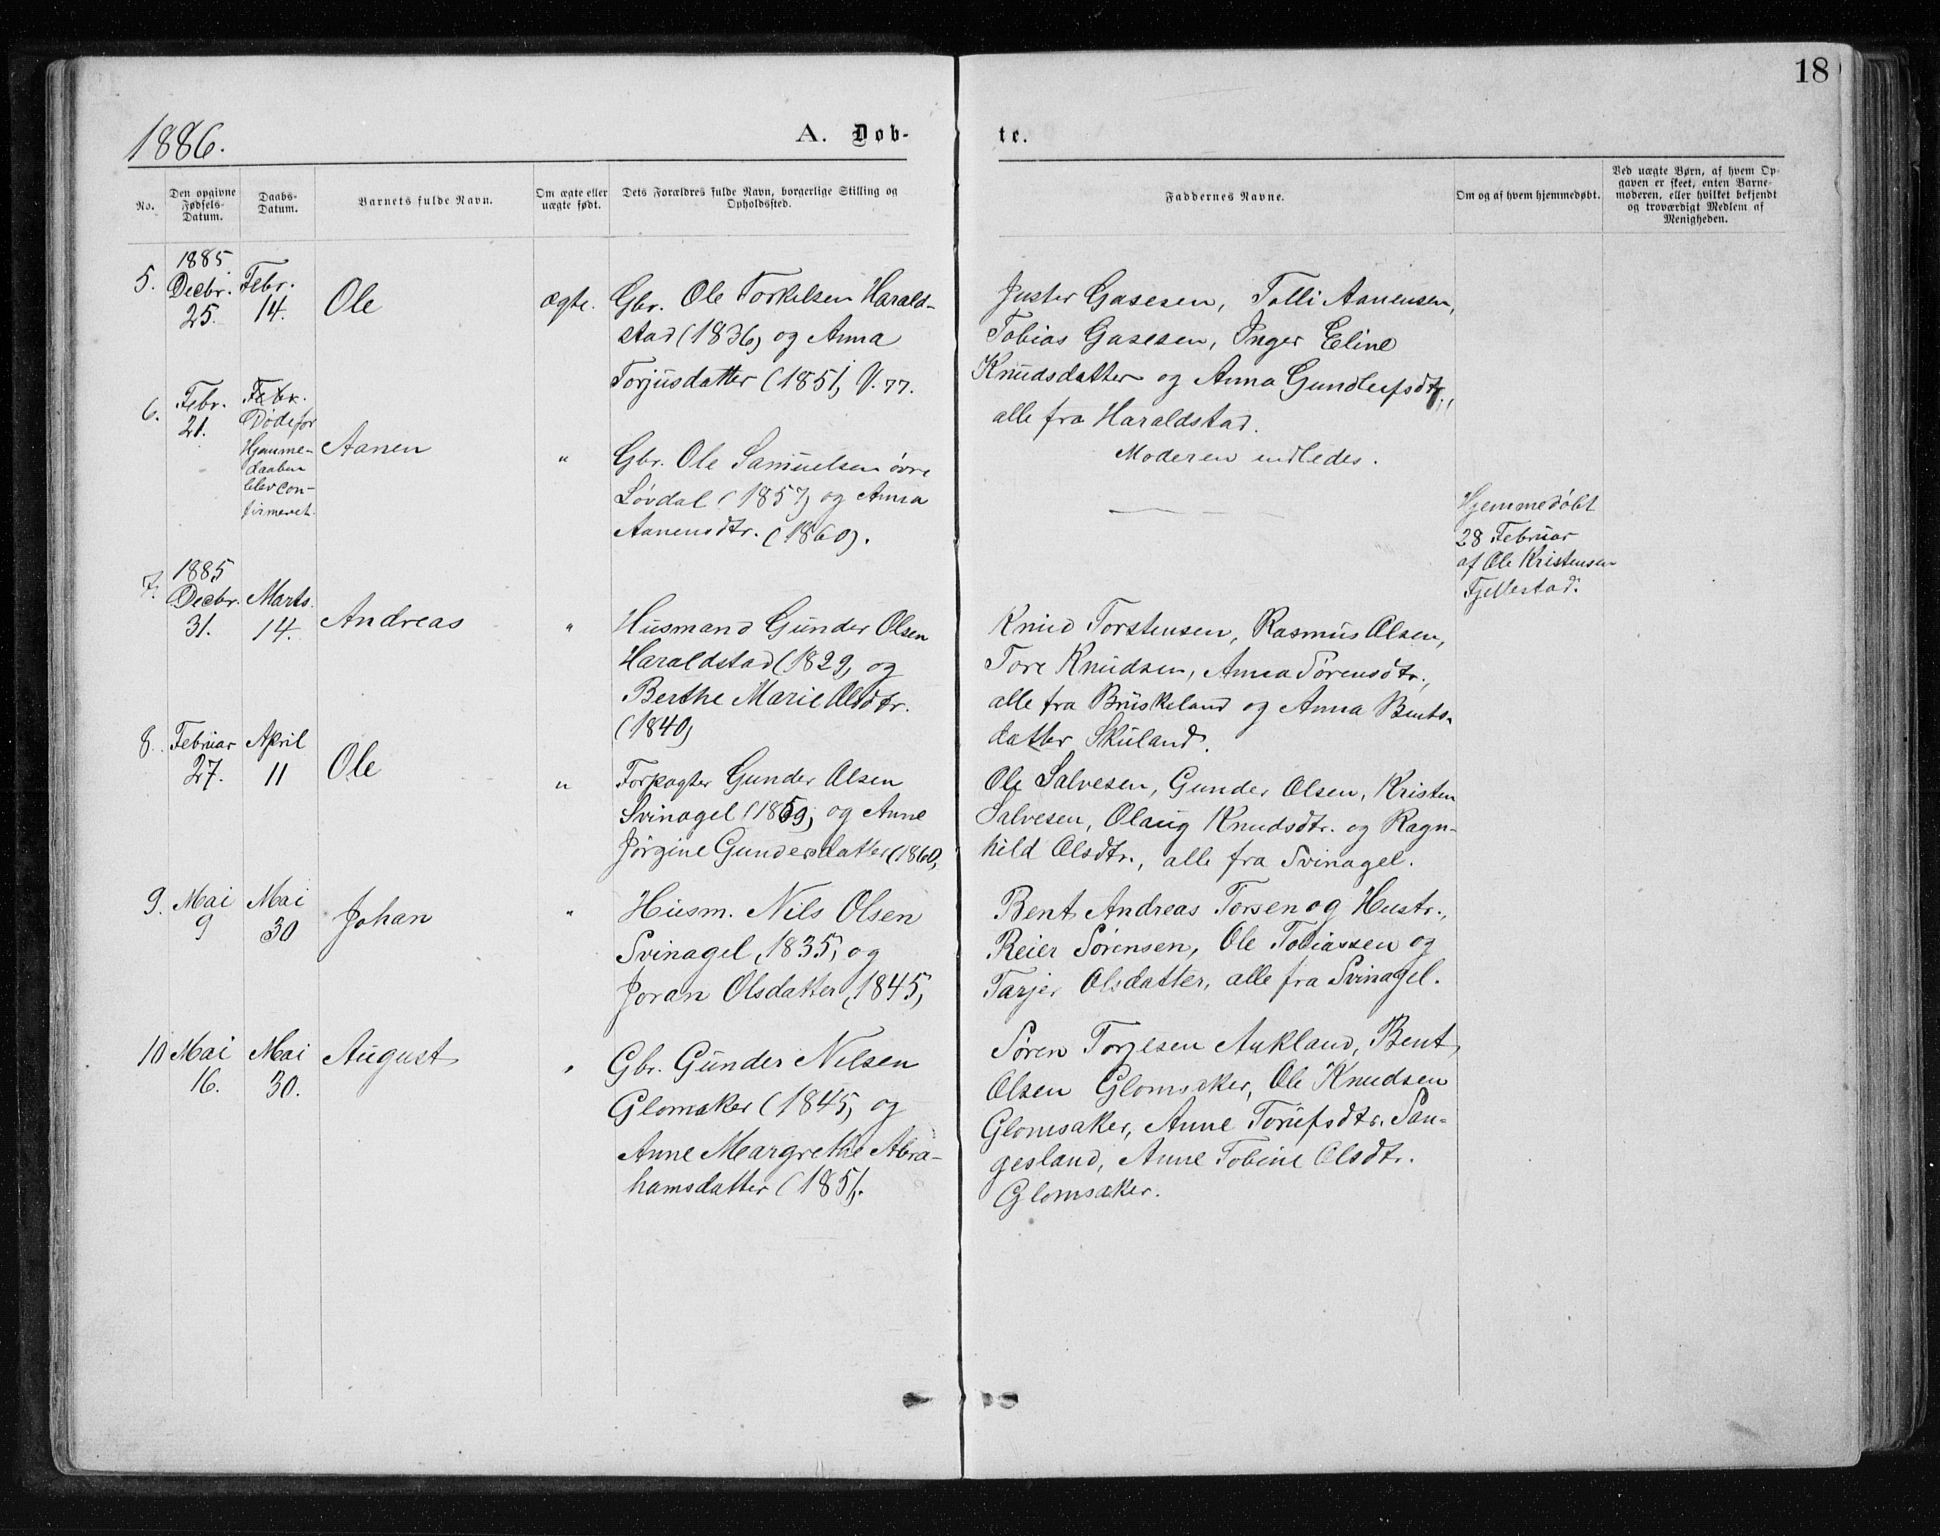 18
1886.
A. Døb-
te.
No.
Den opgivne Fødsels-Datum.
Daabs-Datum.
Barnets fulde Navn.
Om ægte eller uægte født.
Dets Forældres fulde Navn, borgerlige Stilling og Opholdssted.
Faddernes Navne.
Om og af hvem hjemmedøbt.
Ved uægte Børn, af hvem Op-
gaven er skeet, enten Barne-
moderen, eller hvilket bekjendt
og troværdigt Medlem af
Menigheden.
5.
1885.
Decbr.
25.
Febr.
14.
Ole
ægte.
Gbr. Ole Torkelsen Harald-
stad (1836) og Anna
Torjusdatter (1851) V. 77.
Juster Gasesen, Talli Aanensen,
Tobias Gasesen, Inger Eline
Knudsdatter og Anna Gundleifsdtr.,
alle fra Haraldstad.
Moderen indledes.
6.
Febr.
21.
Febr.
Døde før
Hjemme-
daaben
blev con-
firmeret.
Aanen
"
Gbr. Ole Samuelsen øvre
Løvdal (1857) og Anna
Aanensdtr. (1860).
Hjemmedøbt
28 Februar
af Ole Kristensen
Fjellestad.
7.
1885
Decbr.
31.
Marts.
14.
Andreas
"
Husmand Gunder Olsen
Haraldstad (1829) og
Berthe Marie Olsdtr.
(1840)
Knud Torstensen, Rasmus Olsen,
Tore Knudsen, Anna Sørensdtr.,
alle fra Bruskeland og Anna Bents-
datter Skuland.
8.
Februar
27.
April
11
Ole
"
Forpagter Gunder Olsen
Svinagel (1859) og Anne
Jørgine Gundersdatter (1860)
Ole Salvesen, Gunder Olsen, Kristen
Salvesen, Olaug Knudsdtr. og Ragn-
hild Olsdtr., alle fra Svinagel.
9.
Mai
9
Mai
30
Johan
"
Husm. Nils Olsen
Svinagel (1835) og
Joran Olsdatter (1845)
Bent Andreas Torsen og Hustr.,
Reier Sørensen, Ole Tobiassen og
Tarjer Olsdatter, alle fra Svinagel.
10
Mai
16.
Mai
30.
August
"
Gbr. Gunder Nilsen
Glomsaker (1845) og
Anne Margrethe Abra-
hamsdatter (1851).
Søren Torjesen Aukland, Bent
Olsen Glomsaker, Ole Knudsen
Glomsaker, Anne Torufsdtr. San-
gesland, Anne Tobine Olsdtr.
Glomsaker.